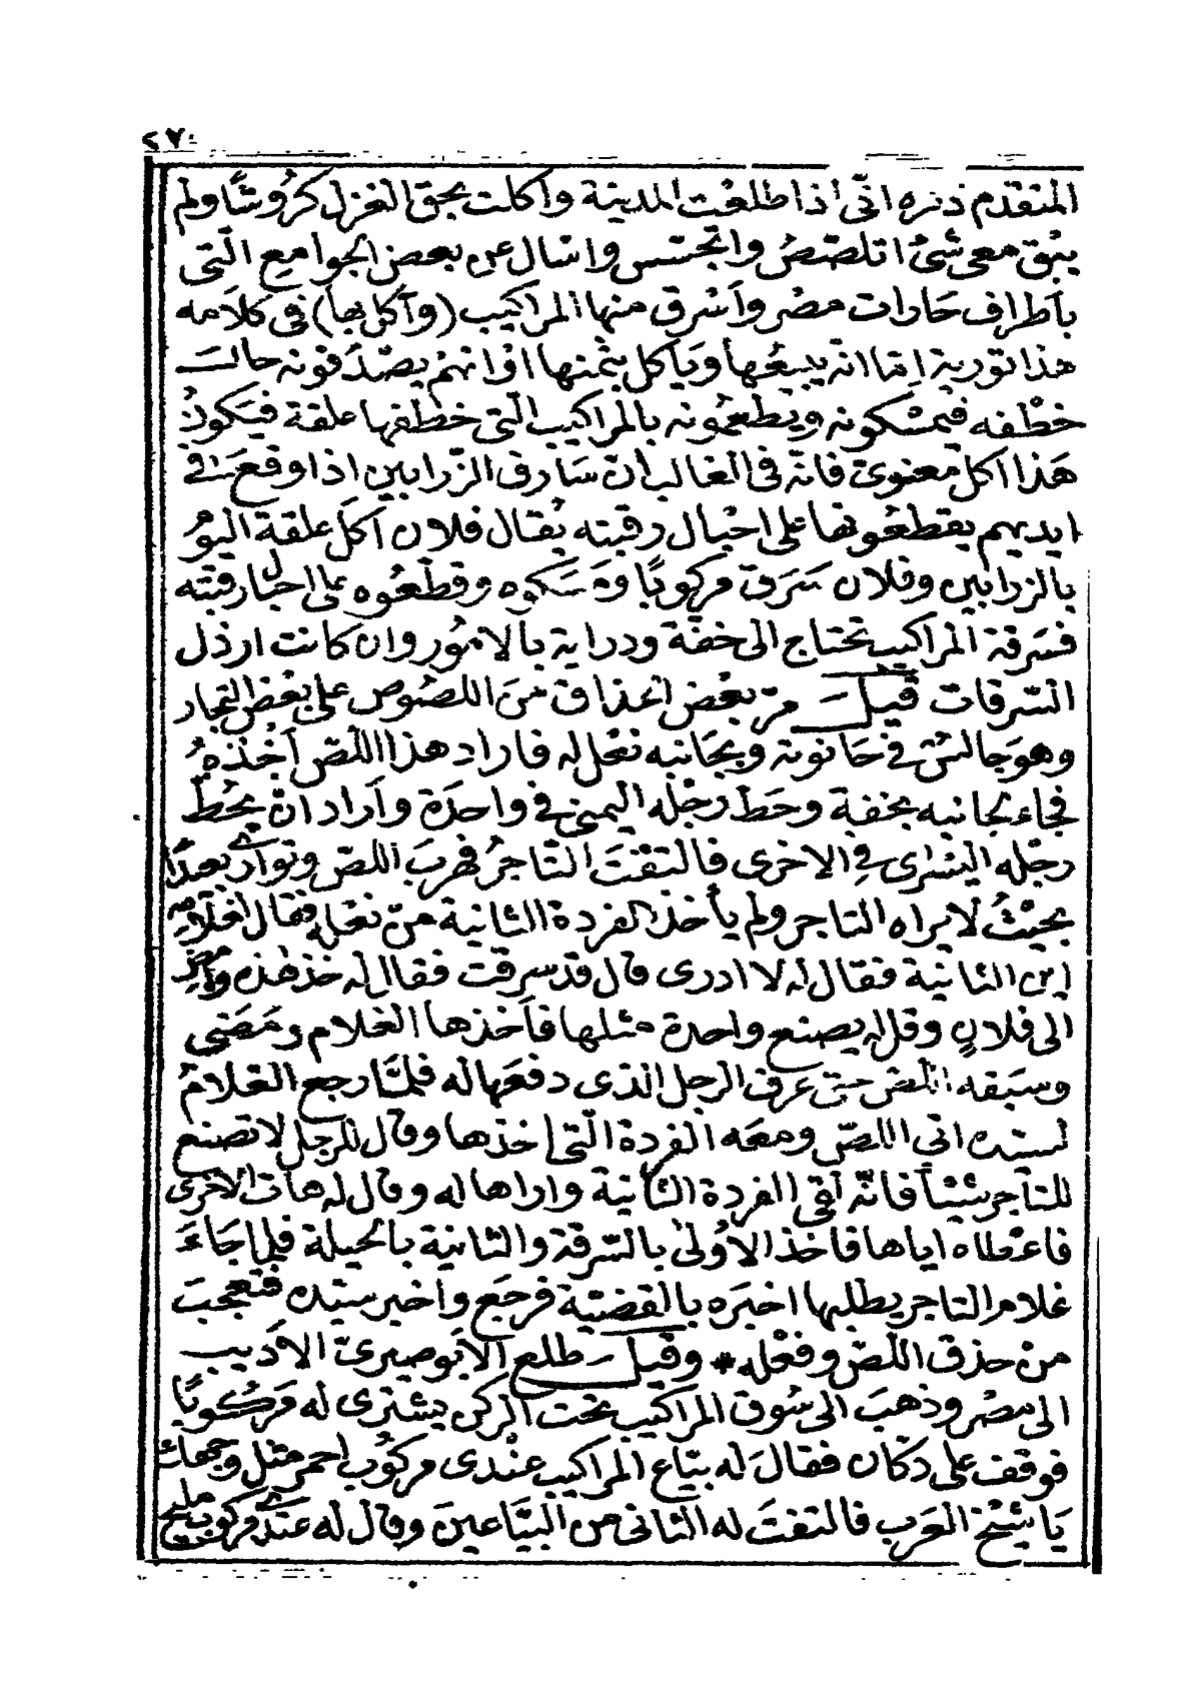 ٢٧٠
المتقدم ذكره انّى اذا طلعْت المدينة واكلت بحق الغزل كُروشًا ولم
يبْق معى شئ اتلصّصُ واتجسّس واسْال عن بعض الجوامع الّتى
بأطراف حَارات مصْر وأسْرق منها المراكيب (وآكل بها) فى كلامه
هذا توريه امّا انّه يبيعُها ويأكل بثمنها اوْ انهمْ يصّدفونه حالت
خطْفه فيمسْكونه ويطعمُونه بالمراكيب الّتى خطفها علقة فيَكونُ
هَذا اكل معنوى فانّه فى الغالب انّ سَارق الزّرابين اذا وقعَ فى
ايديهم يقطعُونها على احْبال رقبته يُقال فلان أكلَ علقة اليوْم
بالزرابين وفلان سَرَق مركوبًا ومَسَكوه وقطّعُوه على احبال رقبته
فسَرقة المراكيب تحْتاج الى خفّة ودراية بالامُور وان كانت ارذل
السّرقات قيل مرّ بعْض الحذاق منَ اللصُوص على بعْض التجار
وهوَ جالسٌ فى حَانوته وبجَانبه نعْل له فاراد هذا اللصّ أخْذهُ
فجاء بجانبه بخفة وحَط رجْله اليمنى فى واحدَة وأراد انْ يحُطّ
رجْله اليسْرى فى الاخرى فالتفتَ التّاجرُ فهربَ اللصّ وتوارى بعيدًا
بحيْثُ لا يراه التاجر ولم يأخذ الفردة الثانية منْ نعْله فقال لغلامه
اين الثانية فقال له لا ادرى قال قد سرقت فقال له خذ هذه وامْض
الى فلانٍ وقل له يصنع واحدة مثلها فأخذها الغلام ومَضى
وسبَقه اللص حتى عرف الرجل الذى دفعَها له فلمَّا رجع الغلامُ
لسيّده اتى اللصّ ومعَه الفردة الّتى اخذها وقال للرجل لا تصنع
للتاجر شيْئاً فانّه لقى الفردة الثانية واراها له وقال له هات الاخرى
فاعْطاه اياها فاخذ الاُولى بالسّرقة والثانية بالحيلة فلما جَاءَ
غلام التاجر يطلبها اخبَره بالقضيّة فرجَع واخبر سيّده فتعجبَ
منْ حذق اللصّ وفعْله * وقيل طلع الأبوصيرىّ الأديب
الى مصْر وذهبَ الى سُوق المراكيب تحْت الركن يشترى له مَركُوبًا
فوقف على دكّان فقالَ له بيّاع المراكيب عنْدى مركُوب احمر مثل وجهك
يَا شيْخ العَرب فالتفتَ له الثانى من البيّاعينَ وقال له عندى مركوب مليح